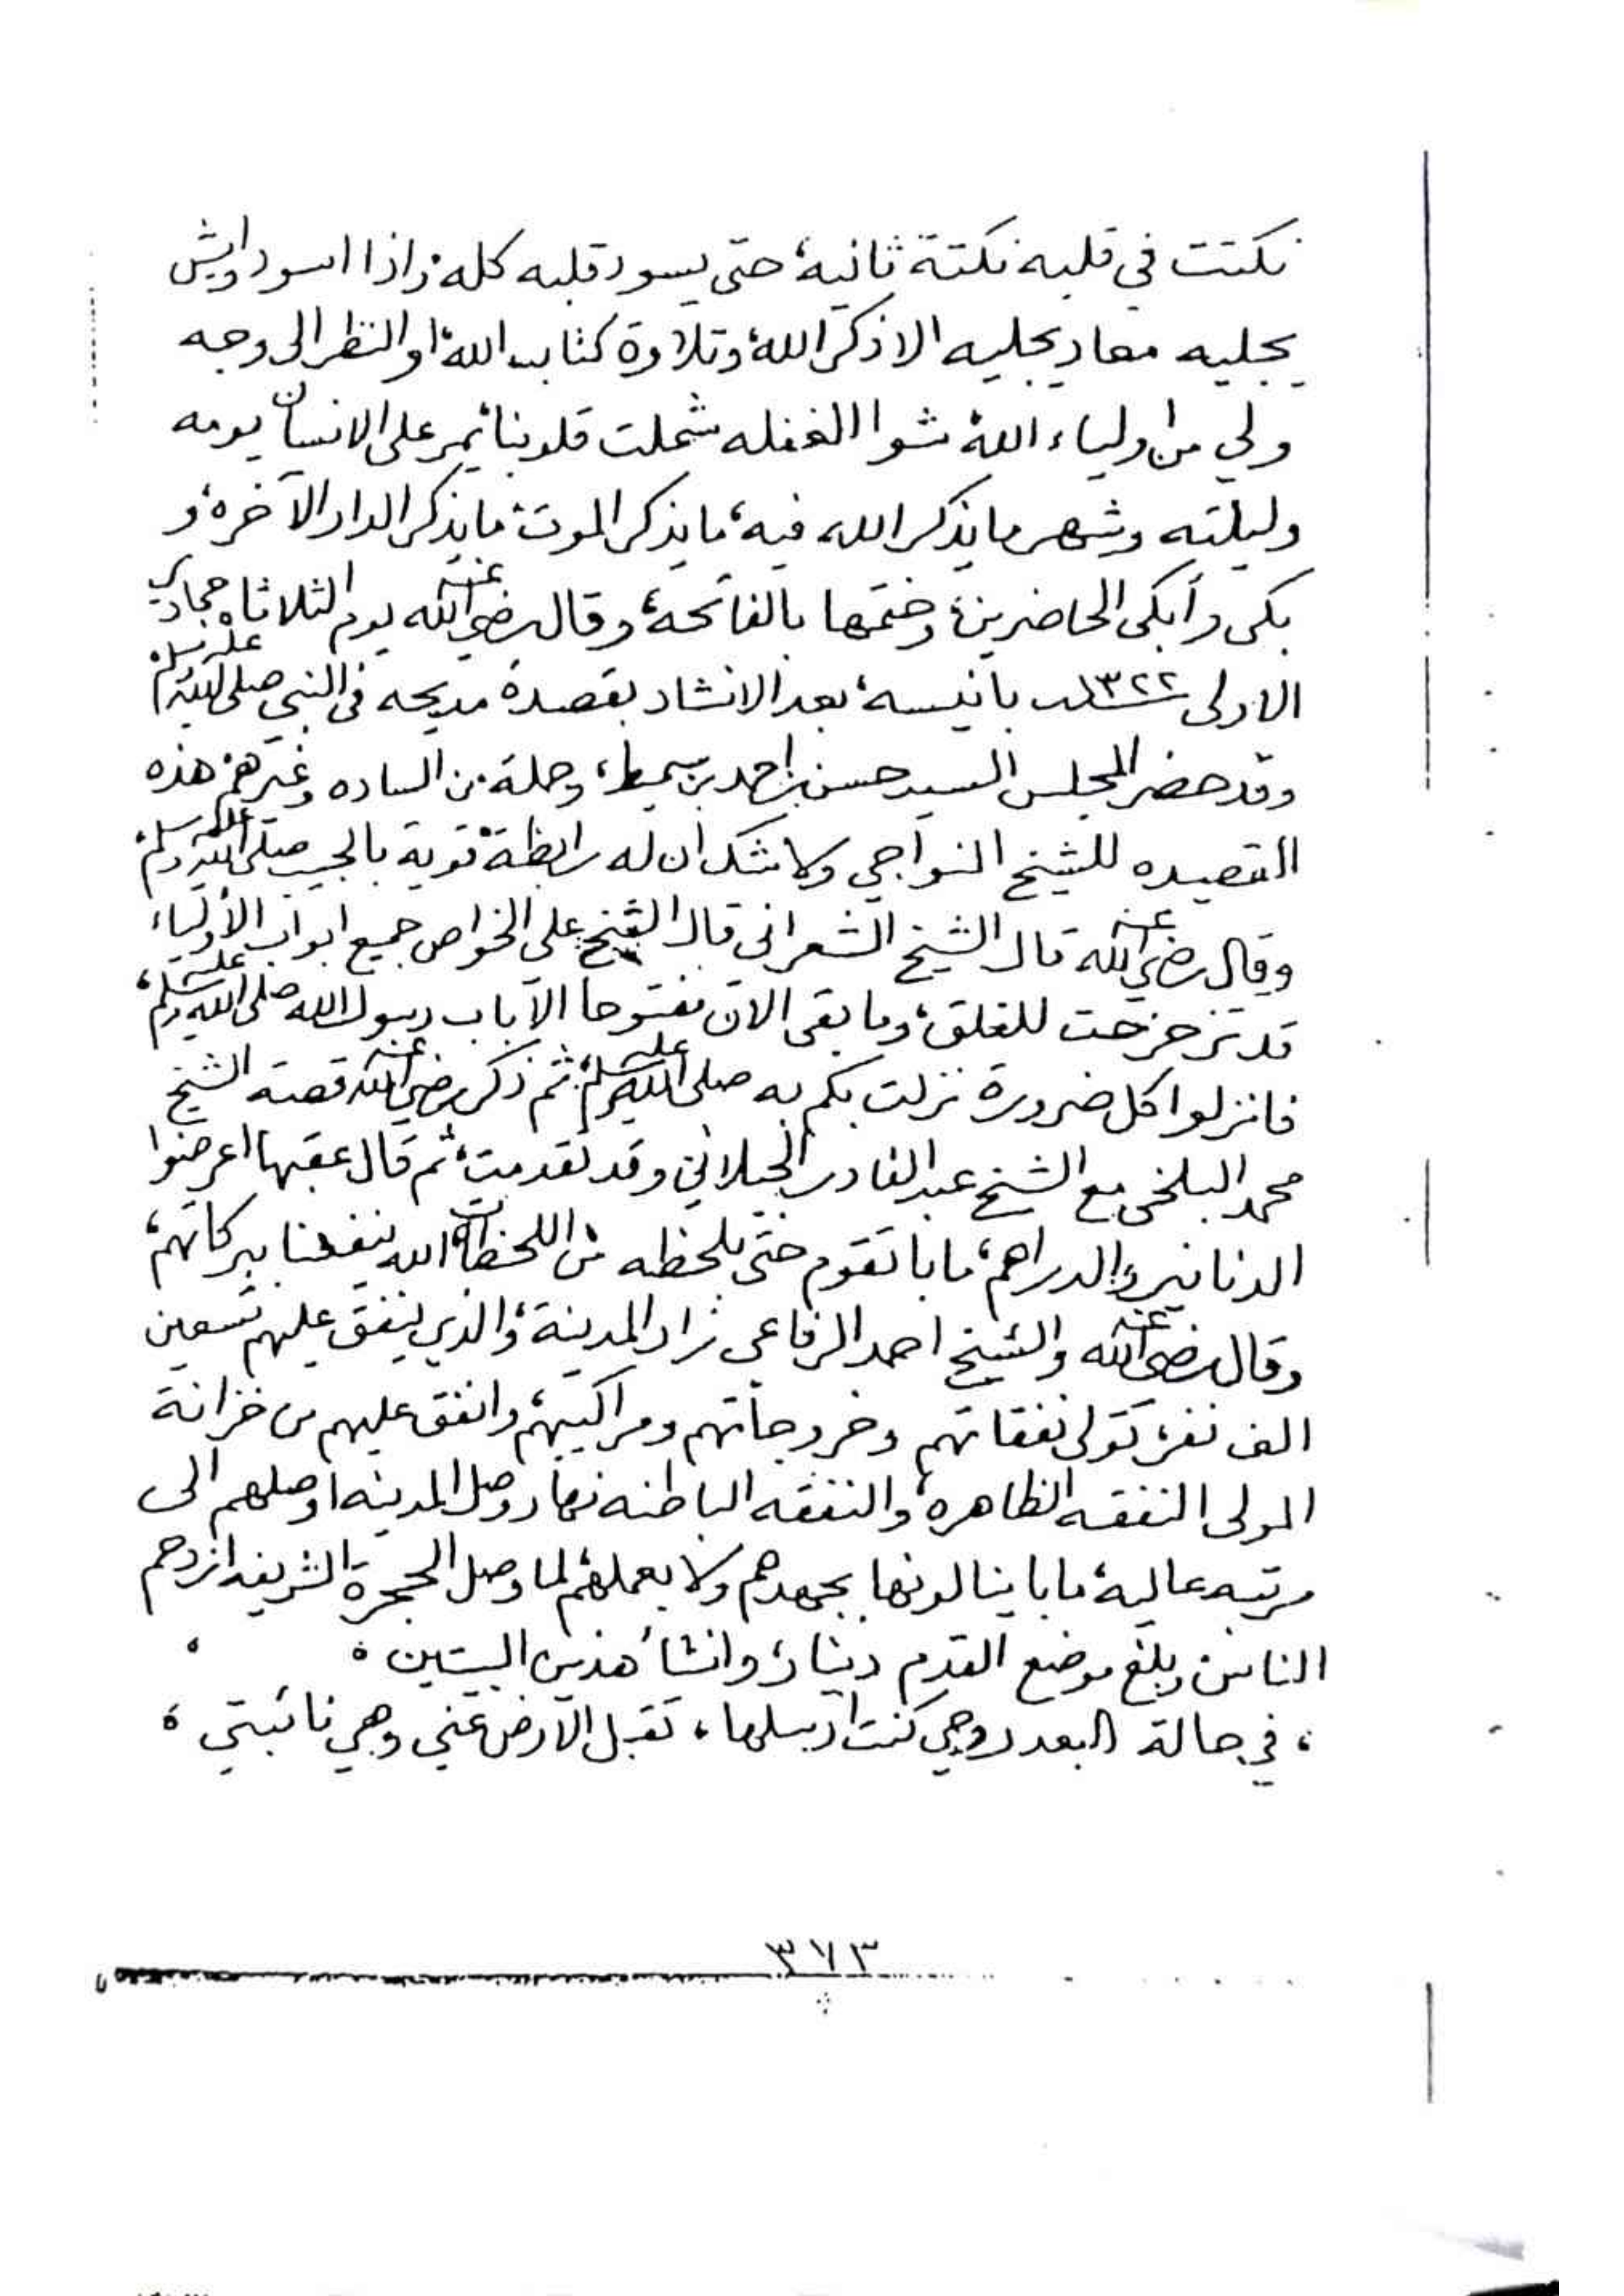 نكتت في قلبه نكتة ثانية، حتى يسود قلبه كله، واذا اسود وايش
يجليه معاد يجليه الا ذكر الله، وتلاوة كتاب الله، او النظر الى وجه
ولي من اولياء الله، شوا الغفله شملت قلوبنا، يمر على الانسان يومه
وليلته وشهر ما يذكر الله فيه، ما يذكر الموت، ما يذكر الدار الآخره، و
بكى وأبكى الحاضرين، وختمها بالفاتحة، وقال رضي الله عنه يوم الثلاثا جمادي
الاولى ١٣٢٢ بانيسه، بعد الانشاد بقصدة مديحه في النبي صلى الله عليه وسلم
وقد حضر المجلس السيد حسن بن احمد بن سميط، وجملة من الساده وغيرهم، هذه
القصيده للشيخ النواجي ولا شك ان له رابطة قوية بالحبيب صلى الله عليه وسلم،
وقال رضي الله عنه قال الشيخ الشعراني قال الشيخ علي الخواص جميع ابواب الأولياء
قد تزحزحت للغلق، وما بقى الآن مفتوحا الا باب رسول الله صلى الله عليه وسلم،
فانزلوا كل ضرورة نزلت بكم به صلى الله عليه وسلم، ثم ذكر رضي الله عنه قصة الشيخ
محمد البلخي مع الشيخ عبد القادر الجيلاني وقد تقدمت، ثم قال عقبها اعرضوا
الدنانير والدراهم، ما با تقوم حتى بلحظه من اللحظات، الله ينفعنا ببركاتهم،
وقال رضي الله عنه والشيخ احمد الرفاعي زار المدينة، والذي ينفق عليهم تسعين
الف نفر، تولى نفقاتهم وخروجاتهم ومراكيبهم، وانفق عليهم من خزانة
المولى النفقه الظاهره، والنفقه الباطنه وصل المدينه اوصلهم الى
مرتبه عاليه، ما با ينالونها بجهدهم ولا بعملهم، لما وصل الحجرة الشريفه ازدحم
الناس وبلغ موضع القدم دينار، وانشأ هذين البيتين ،
، في حالة البعد روحي كنت ارسلها ، تقبل الارض عني وهي نائبتي ،
٣٧٣